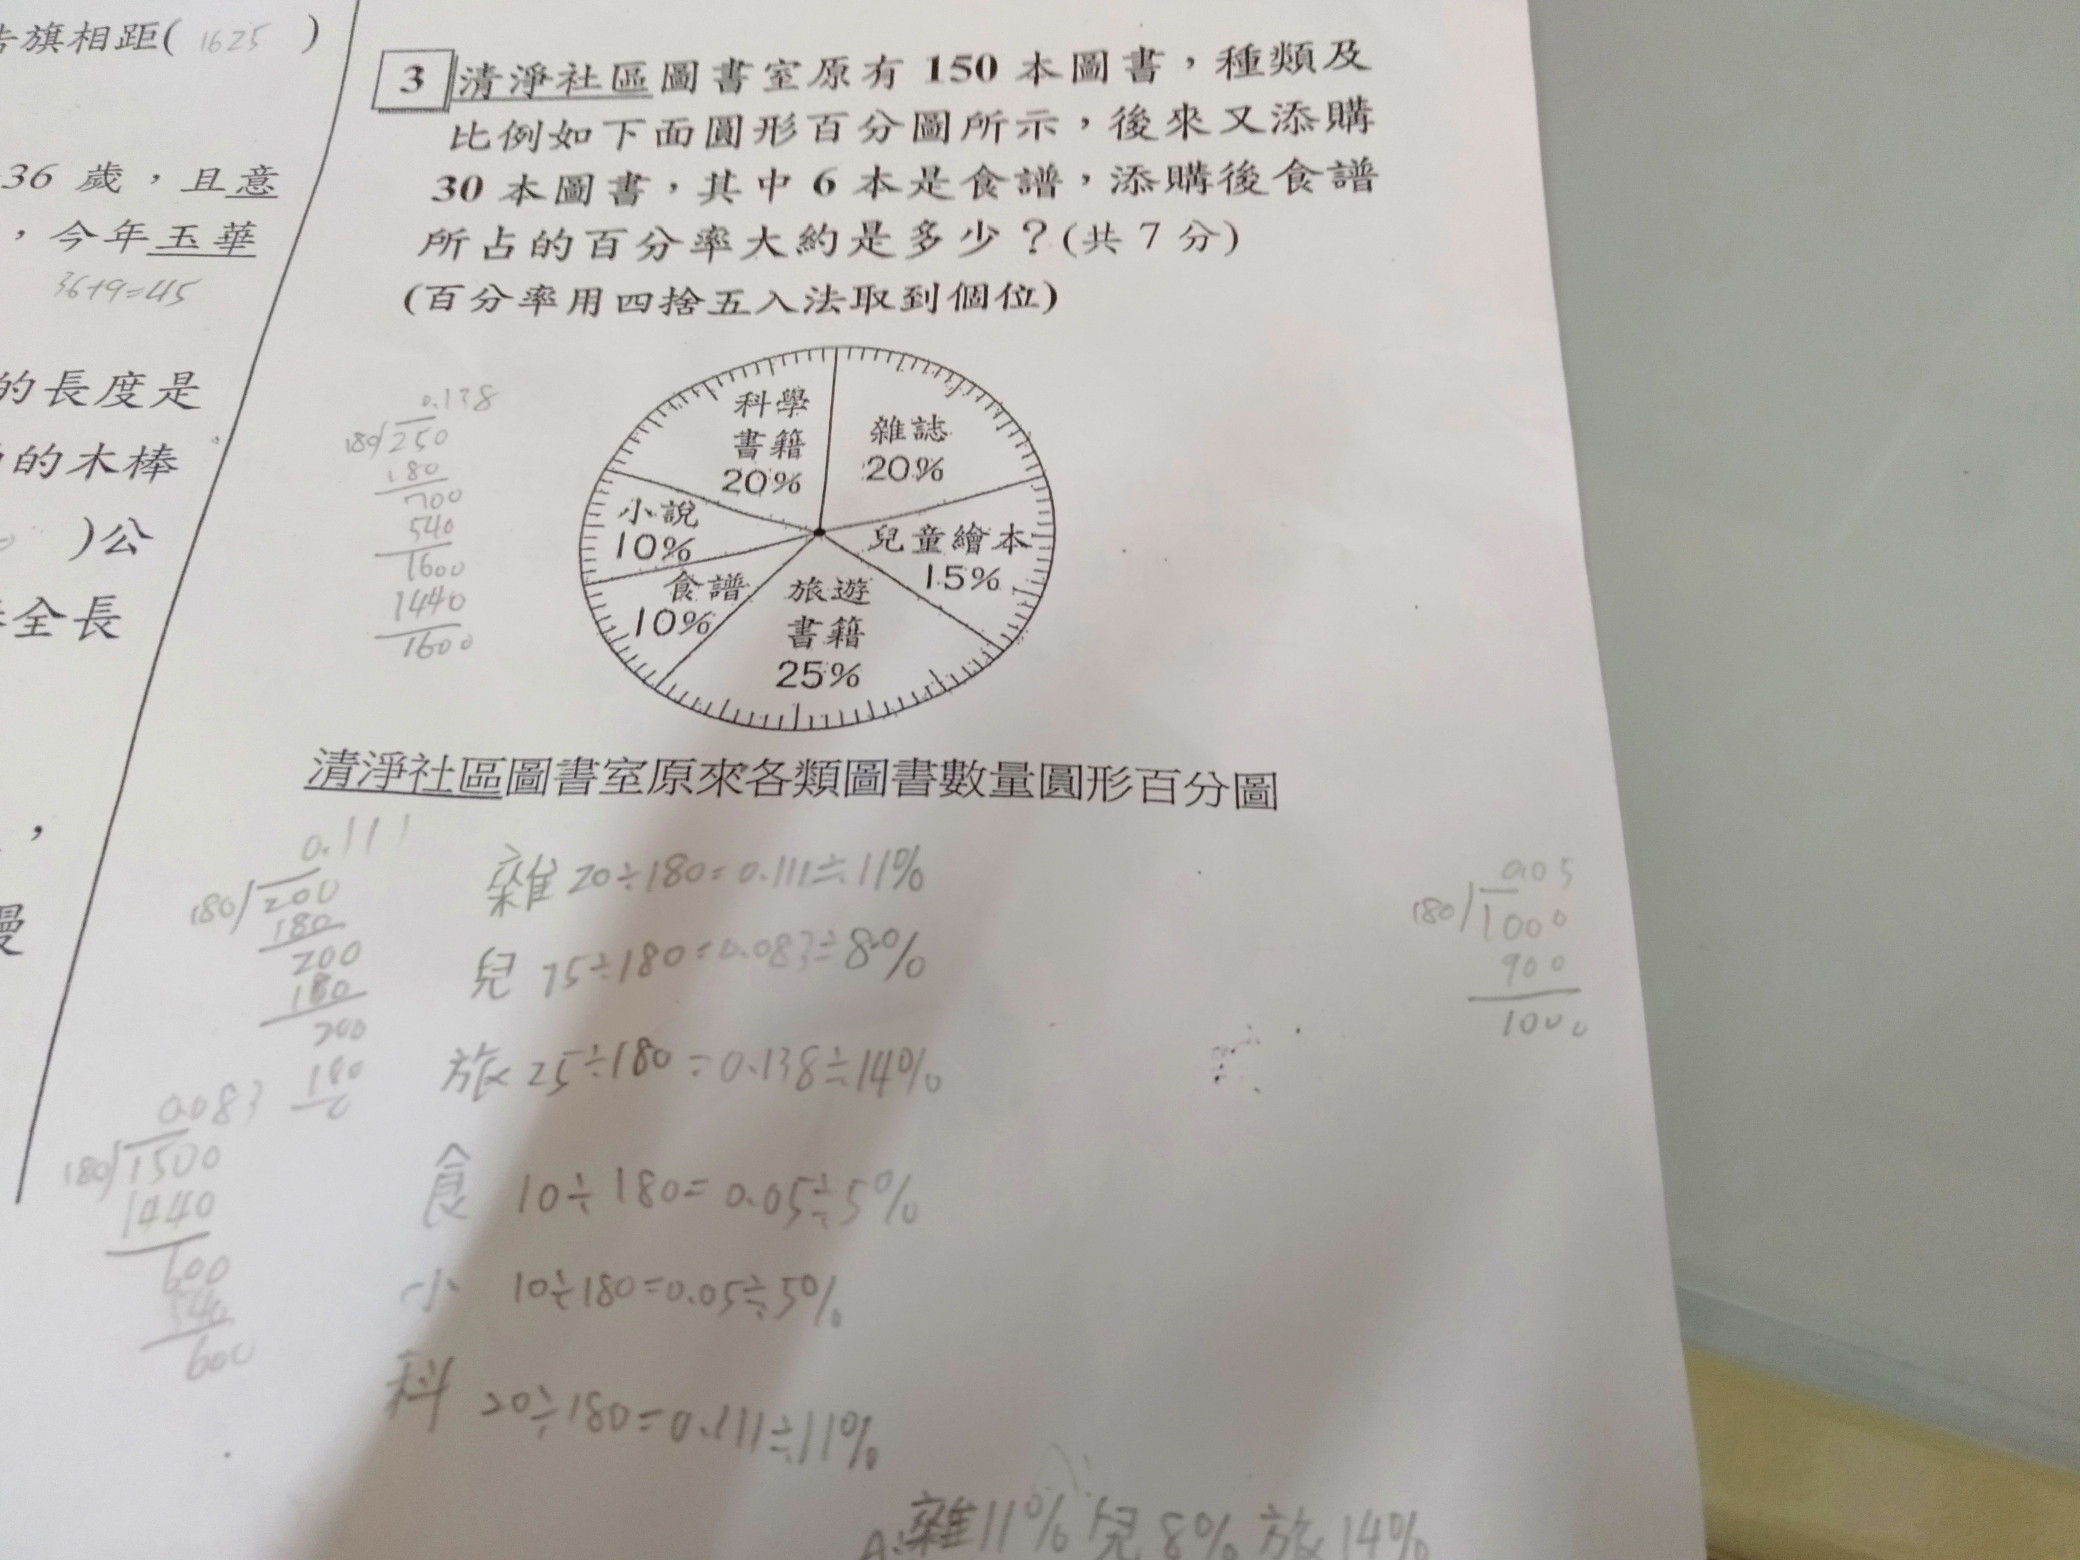 旗相距( 1625 )
36 歲，且意
，今年玉華
36+9=45
的長度是
的木棒
)公
全長
，
3 清淨社區圖書室原有 150 本圖書，種類及
比例如下面圓形百分圖所示，後來又添購
30 本圖書，其中 6 本是食譜，添購後食譜
所占的百分率大約是多少？(共 7 分)
(百分率用四捨五入法取到個位)
科學
書籍
20%
雜誌
20%
小說
10%
兒童繪本
15%
食譜
10%
旅遊
書籍
25%
0.138
180 250
180
700
540
1600
1440
1600
清淨社區圖書室原來各類圖書數量圓形百分圖
0.111
180 200
180
200
180
200
180
雜 20÷180=0.111≒11%
兒 15÷180=0.083≒8%
旅 25÷180=0.138≒14%
食 10÷180=0.05≒5%
小 10÷180=0.05≒5%
科 20÷180=0.111≒11%
0.083
180 1500
1440
600
540
600
0.05
180 1000
900
1000
A:雜11% 兒8% 旅14%